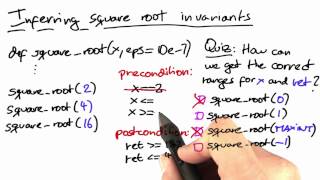 Inferring square root invariants
def square_root(x, eps=10e-7)
⋮
square_root(2)
square_root(4)
square_root(16)
precondition:
x==2
x <=
x >=
postcondition:
ret >=
ret <= 4
Quiz: How can
we get the correct
ranges for x and ret?
square_root(0)
square_root(1)
square_root(MAXINT)
square_root(-1)